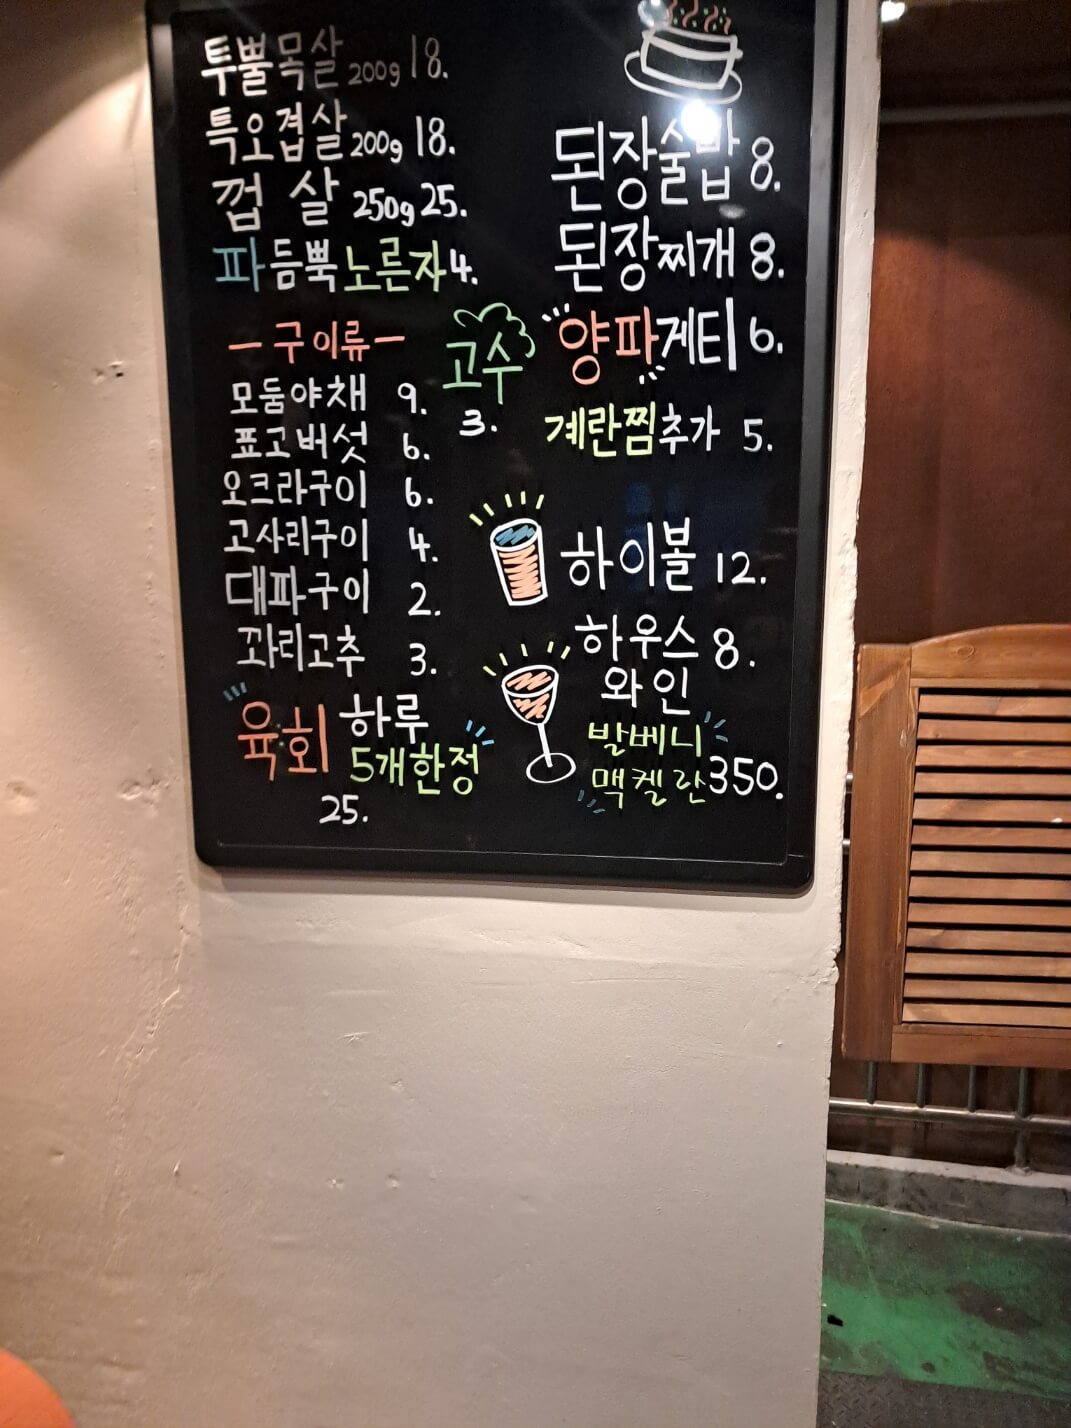 투뿔목살 200g 18.
특오겹살 200g 18.
껍살 250g 25.
파듬뿍노른자 4.
- 구이류 -
모둠야채 9.
표고버섯 6.
오크라구이 6.
고사리구이 4.
대파구이 2.
꽈리고추 3.
육회 하루
5개한정
25.
고수
3.
된장술밥 8.
된장찌개 8.
양파게티 6.
계란찜추가 5.
하이볼 12.
하우스 8.
와인
발베니
맥켈란 350.